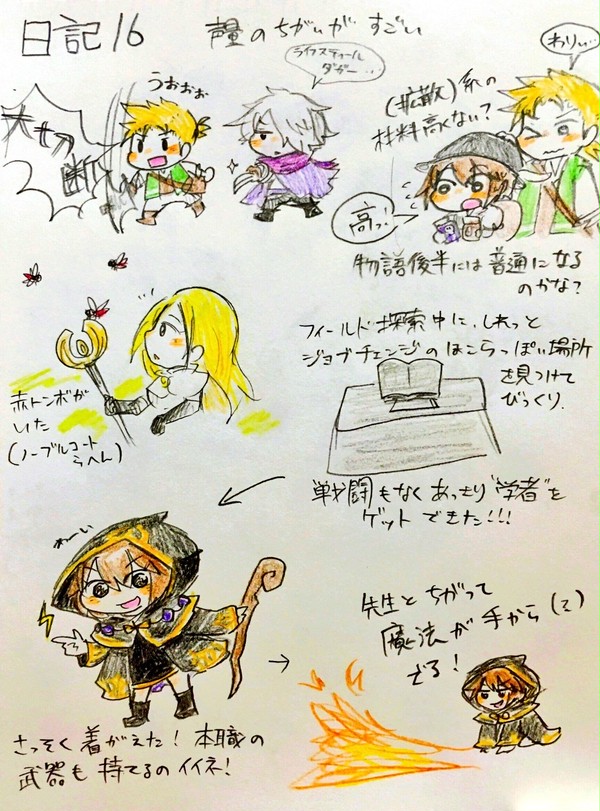 日記16
声量のちがいがすごい
うおぉぉ
大せつ断
ライフスティール
ダガー…
(拡散)系の
材料高くない?
わりぃ…
高っ!
物語後半には普通になる
のかな?
赤トンボが
いた
(ノーブルコート
らへん)
フィールド探索中に、しれっと
ジョブチェンジのほこらっぽい場所
を見つけて
びっくり.
戦闘もなくあっさり"学者"を
ゲットできた!!!
わーい
さっそく着がえた!本職の
武器も持てるのイイネ!
先生とちがって
魔法が手から
でる!